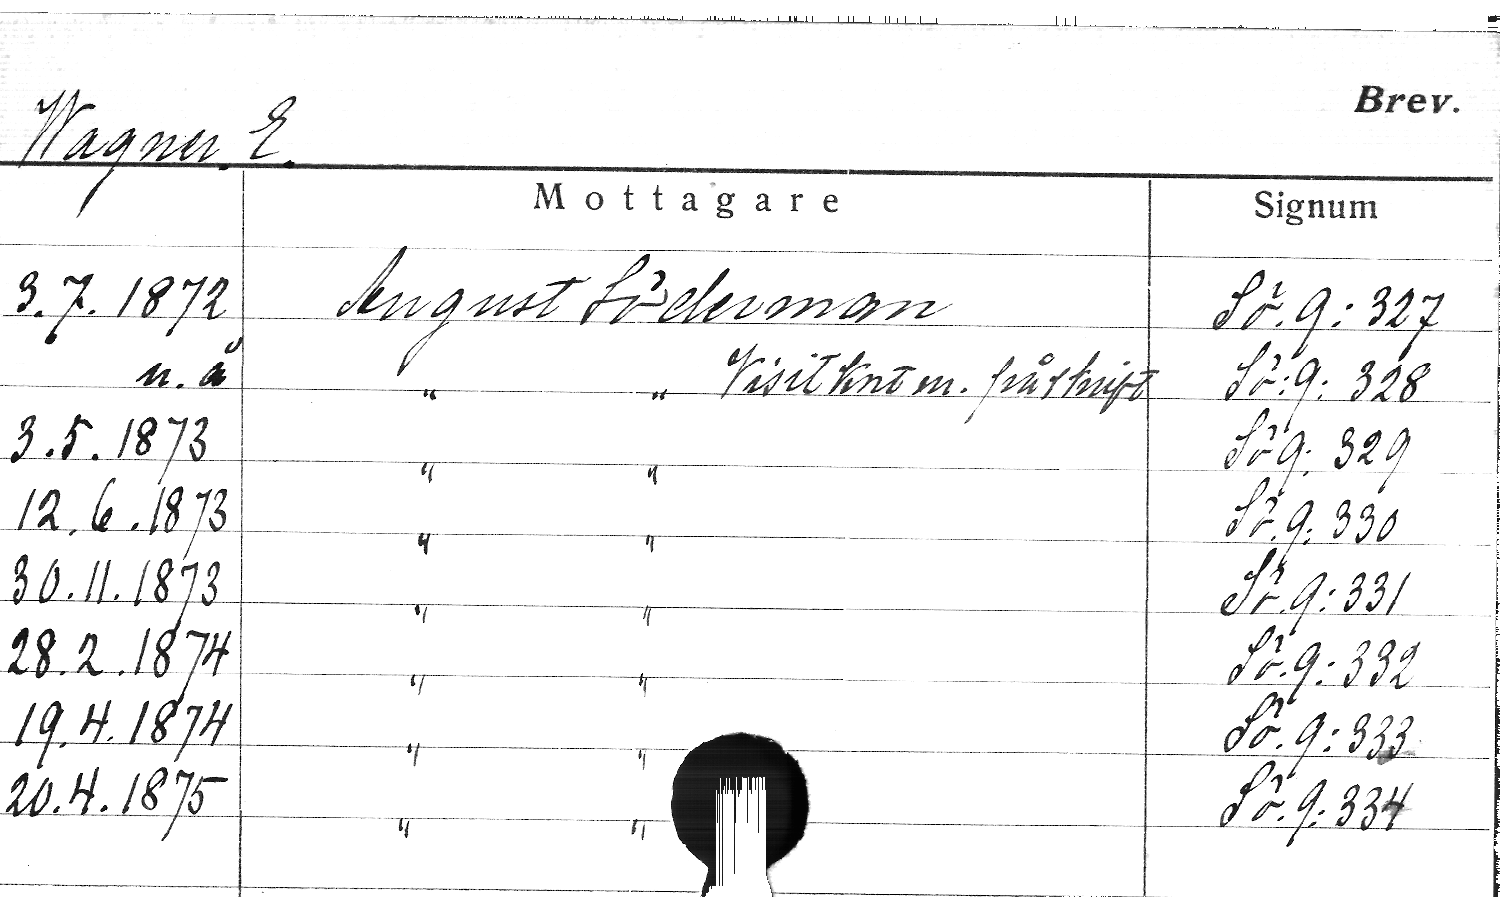 Brev.
Wagner. E.
Mottagare Signum
3.7.1872 August Söderman Sö.9:327
u.å " " Visitkort m. påskrift Sö:9:328
3.5.1873 " " Sö9:329
12.6.1873 " " Sö.9:330
30.11.1873 " " Sö.9:331
28.2.1874 " " Sö.9:332
19.4.1874 " " Sö.9:333
20.4.1875 " " Sö.9:334